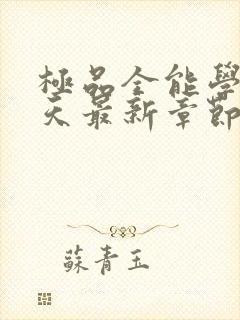 極品全能學
天最新章節
蘇青玉